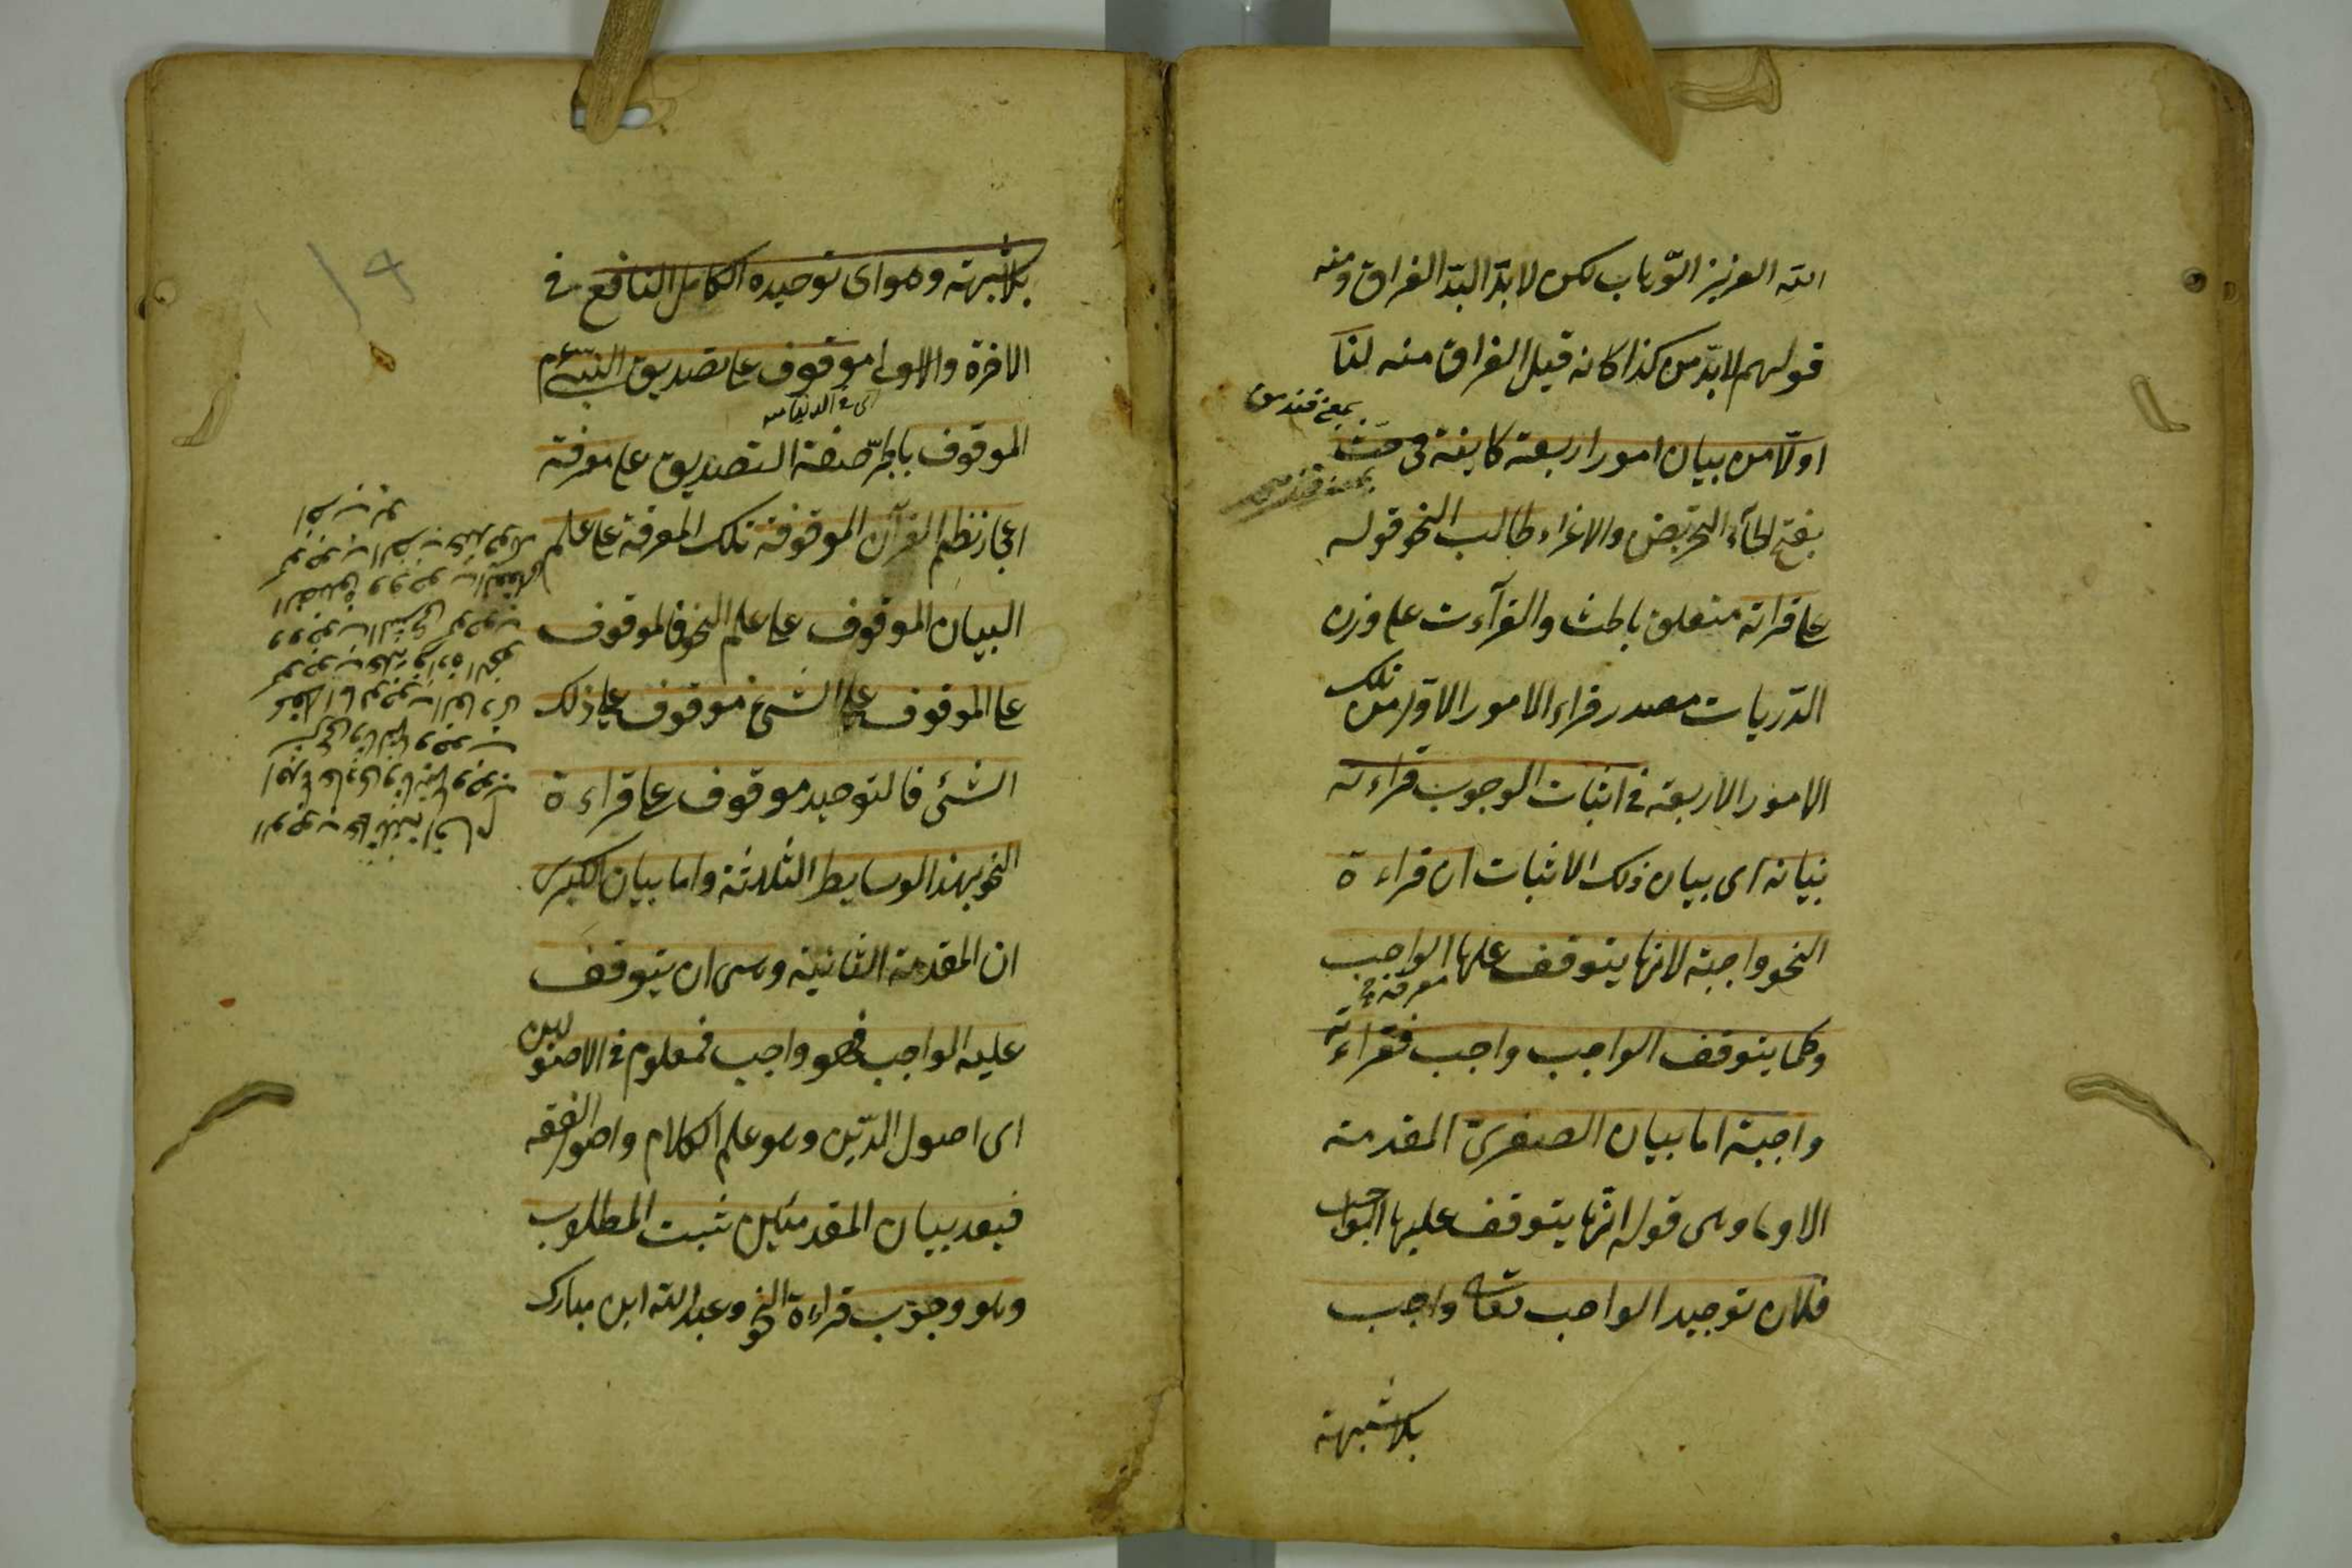 الله العزيز الوهاب لكن لا بدّ البدّ الفراق ومنه
قولهم لابدّ من كذا كانه قيل لا فراق منه لنا
اولا من بيان امور اربعة كاينة فى حث
بمعنى قندرمق
بفتح الحاء التحريض والاغراء طالب النحو قوله
على قراته متعلق بالحث والقرآءت على وزن
الدّريات مصدر قراء الامور الاول من تلك
الامور الاربعة فى اثبات الوجوب قراءته
بيانه اى بيان ذلك الاثبات ان قراءة
النحو واجبة لانها يتوقف عليها الواجب
معرفة
وكلما يتوقف الواجب واجب فقراءته
واجبة اما بيان الصغرىّ المقدمة
الاولى وهى قوله انّها يتوقف عليها الواجب
فلان توحيد الواجب تعالى واجب
بلا شبهة
بلا شبهة وهو اى توحيده الكامل النافع فى
الاخرة والاولى موقوف على تصديق النبىّ عم
اى فى الدنيا
الموقوف بالجرّ صفة التصديق على معرفة
اعجاز نظم القرآن الموقوفة تلك المعرفة على علم
البيان الموقوف على علم النحو فالموقوف
على الموقوف على الشئ موقوف على ذلك
الشئ فالتوحيد موقوف على قراءة
النحو بهذا الوسايط الثلاثة واما بيان الكبرى
ان المقدمة الثانية وهى ان يتوقف
عليه الواجب فهو واجب فمعلوم فى الاصولين
اى اصول الدّين وهو علم الكلام واصول الفقه
فبعد بيان المقدمتين ثبت المطلوب
وهو وجوب قراءة النحو وعبد الله ابن مبارك
الوجوب على ثلثة اقسام